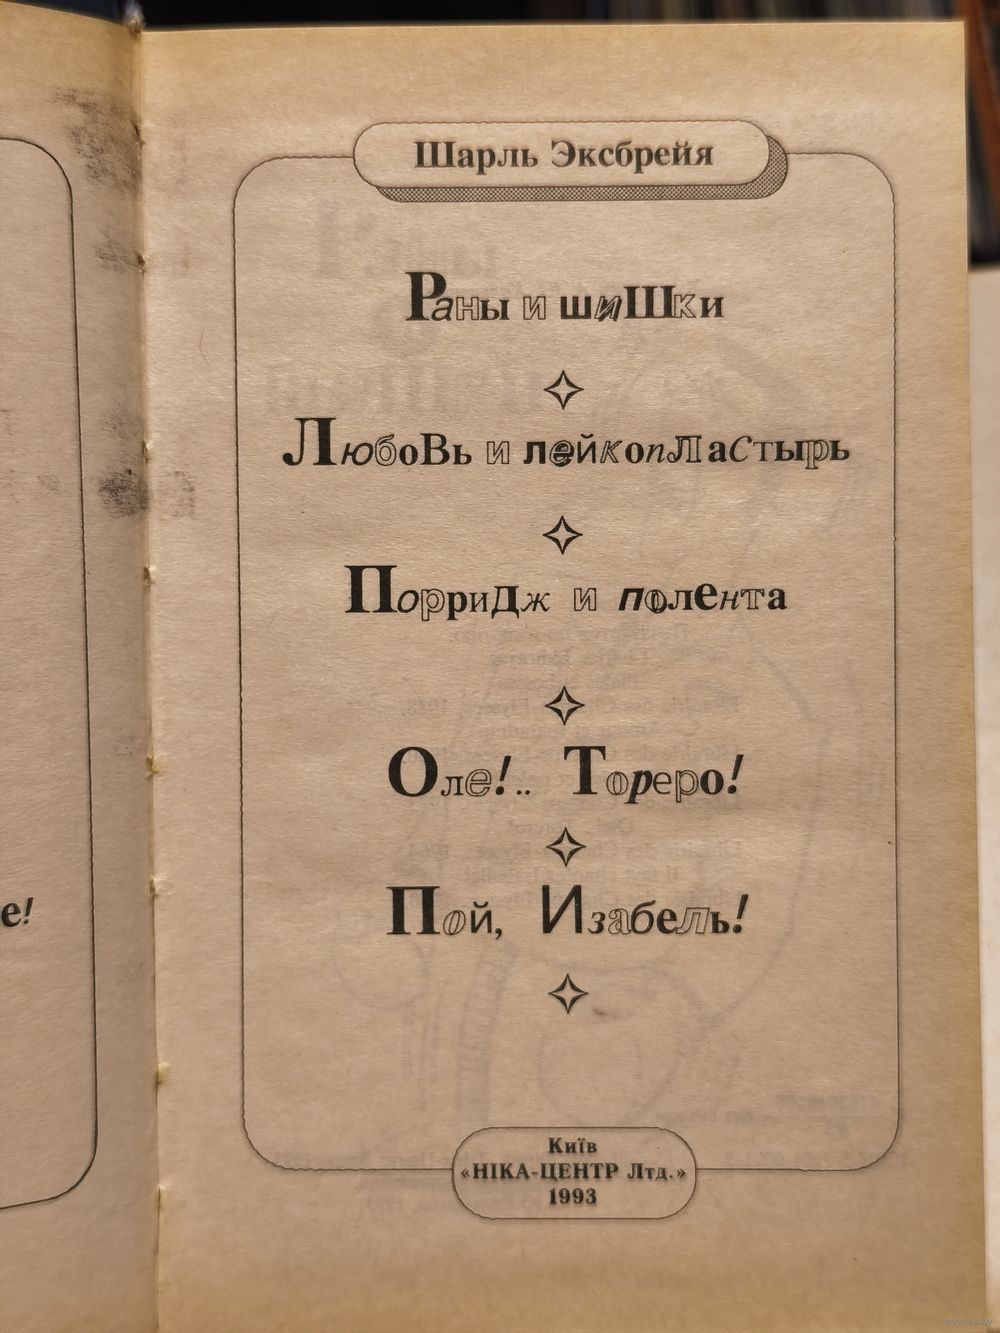 Шарль Эксбрейя
Раны и шиШки
ЛюбоВь и лейкопЛаСтырь
ПорриДж и полента
Оле!.. Тореро!
Пой, Изабель!
е!
Київ
«НІКА-ЦЕНТР Лтд.»
1993